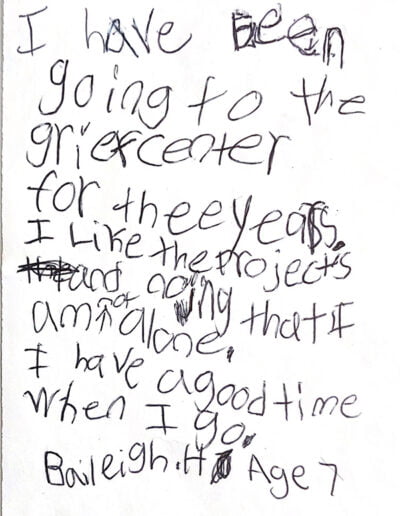 I have Been
going to the
griefcenter
for thee years.
I Like the Projects
and noing that I
am not alone.
I have a good time
when I go.
Baileigh.H Age 7